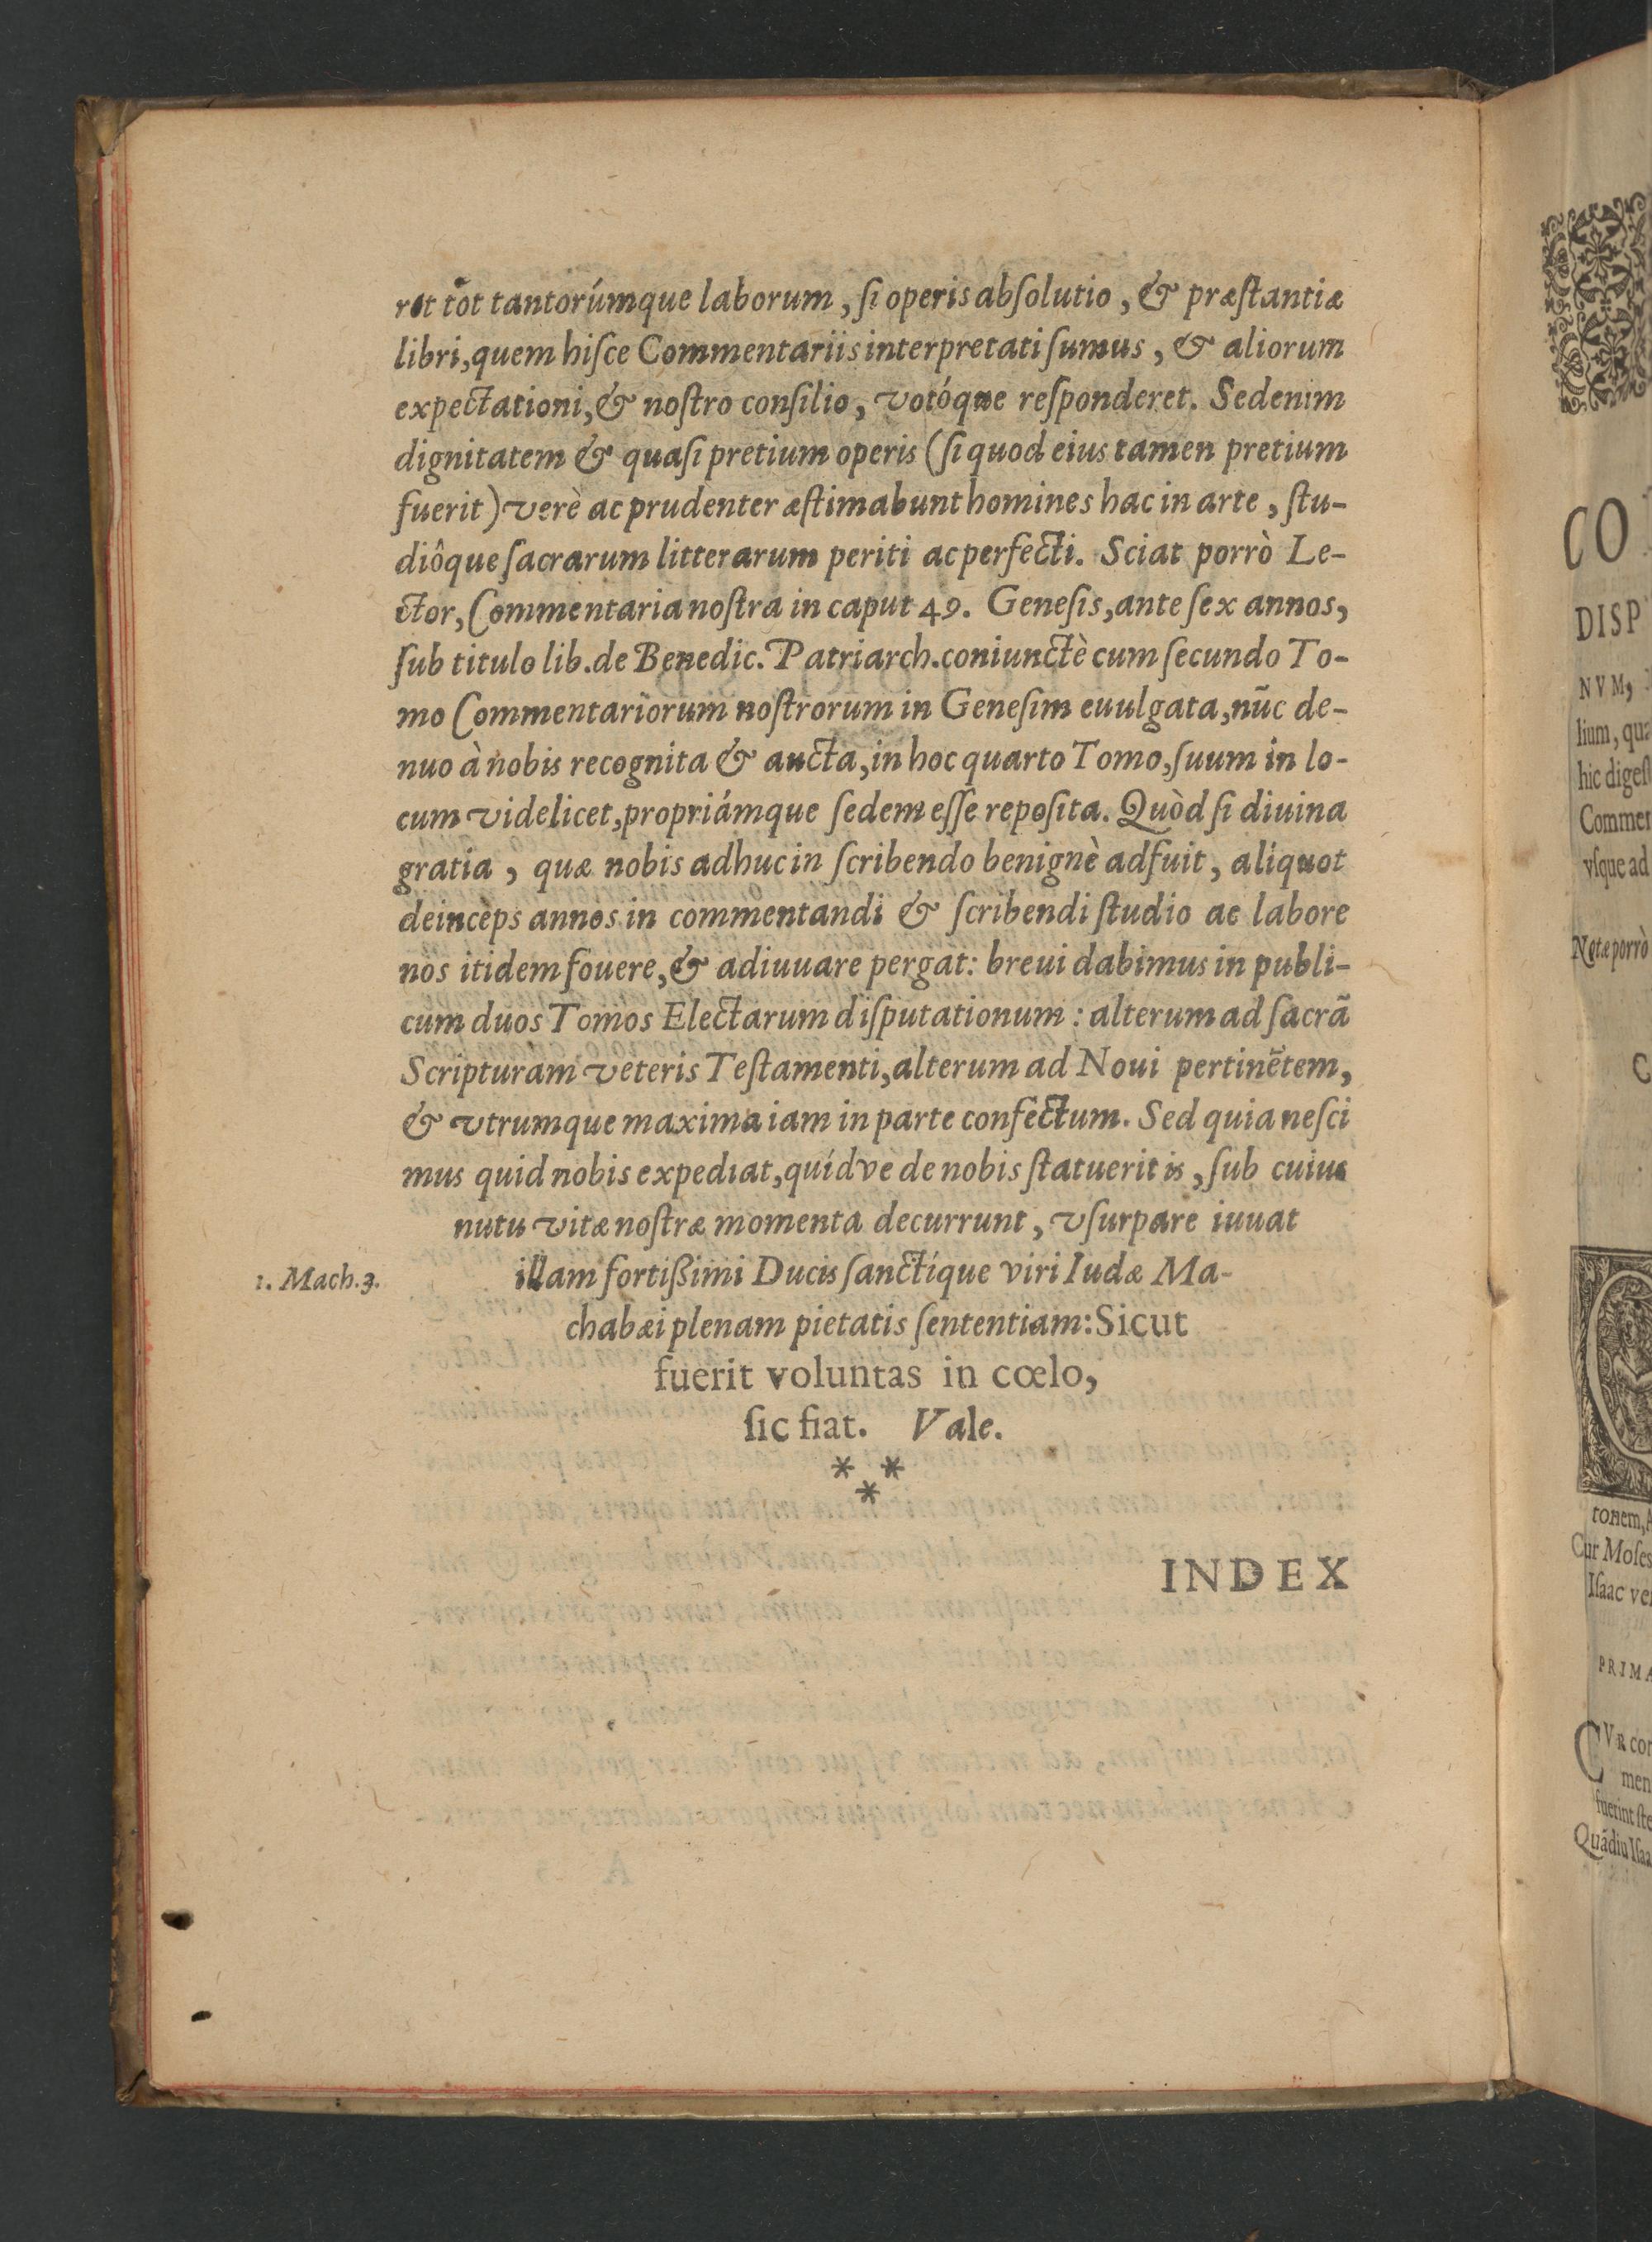 ret tot tantorúmque laborum, ſi operis abſolutio, & præſtantiæ
libri, quem hiſce Commentariis interpretati ſumus, & aliorum
expectationi, & noſtro conſilio, votóque reſponderet. Sed enim
dignitatem & quaſi pretium operis (ſi quod eius tamen pretium
fuerit) verè ac prudenter æſtimabunt homines hac in arte, ſtu-
diôque ſacrarum litterarum periti ac perfecti. Sciat porrò Le-
ctor, Commentaria noſtra in caput 49. Geneſis, ante ſex annos,
ſub titulo lib. de Benedic. Patriarch. coniunctè cum ſecundo To-
mo Commentariorum noſtrorum in Geneſim euulgata, nūc de-
nuo à nobis recognita & aucta, in hoc quarto Tomo, ſuum in lo-
cum videlicet, propriámque ſedem eſſe repoſita. Quòd ſi diuina
gratia, quæ nobis adhuc in ſcribendo benignè adfuit, aliquot
deinceps annos in commentandi & ſcribendi ſtudio ac labore
nos itidem fouere, & adiuuare pergat: breui dabimus in publi-
cum duos Tomos Electarum diſputationum: alterum ad ſacrã
Scripturam veteris Teſtamenti, alterum ad Noui pertinẽtem,
& vtrumque maxima iam in parte confectum. Sed quia neſci
mus quid nobis expediat, quídve de nobis ſtatuerit is, ſub cuius
nutu vitæ noſtræ momenta decurrunt, vſurpare iuuat
1. Mach. 3.
illam fortißimi Ducis ſanctíque viri Iudæ Ma-
chabæi plenam pietatis ſententiam: Sicut
fuerit voluntas in cœlo,
ſic fiat. Vale.
* *
*
INDEX
CO
DISP
NVM,
lium, qua
hic digeſt
Commer
vſque ad
Notæ porrò
C
tonem, A
Cur Moſes
Iſaac ve
PRIMA
CVR cor
men
fuerint ſte
Quādiu Iſaa